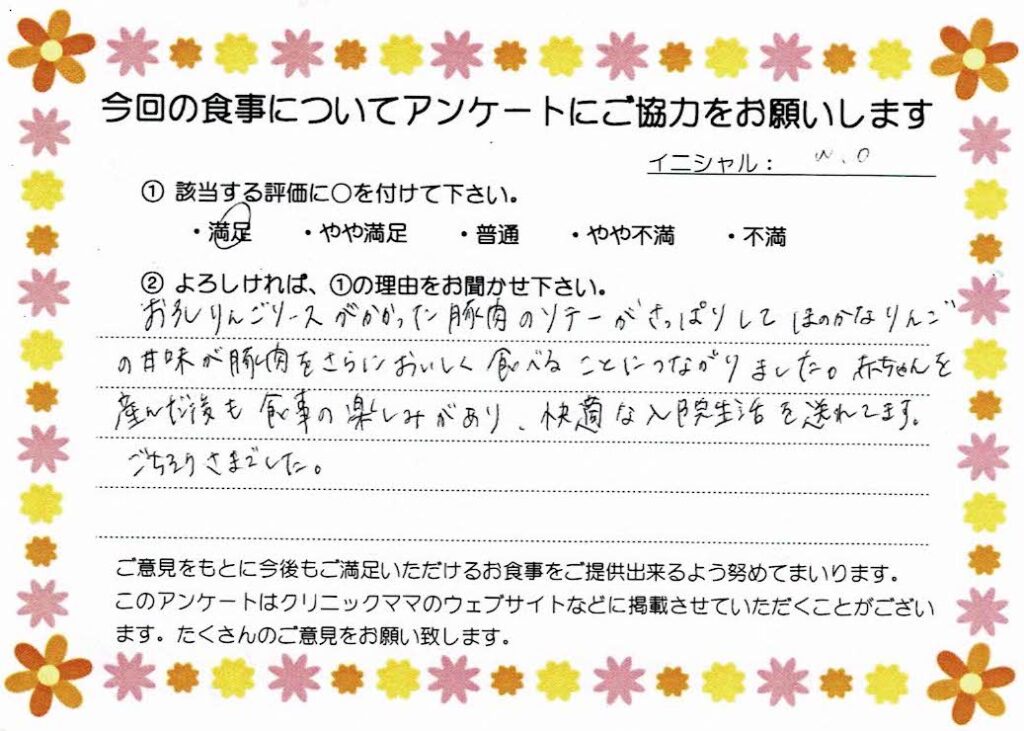 今回の食事についてアンケートにご協力をお願いします
イニシャル： W.O
① 該当する評価に○を付けて下さい。
・満足 ・やや満足 ・普通 ・やや不満 ・不満
② よろしければ、①の理由をお聞かせ下さい。
おろしりんごソースがかかった豚肉のソテーがさっぱりして ほのかなりんご
の甘味が豚肉をさらにおいしく食べることにつながりました。赤ちゃんを
産んだ後も食事の楽しみがあり、快適な入院生活を送れてます。
ごちそうさまでした。
ご意見をもとに今後もご満足いただけるお食事をご提供出来るよう努めてまいります。
このアンケートはクリニックママのウェブサイトなどに掲載させていただくことがござい
ます。たくさんのご意見をお願い致します。